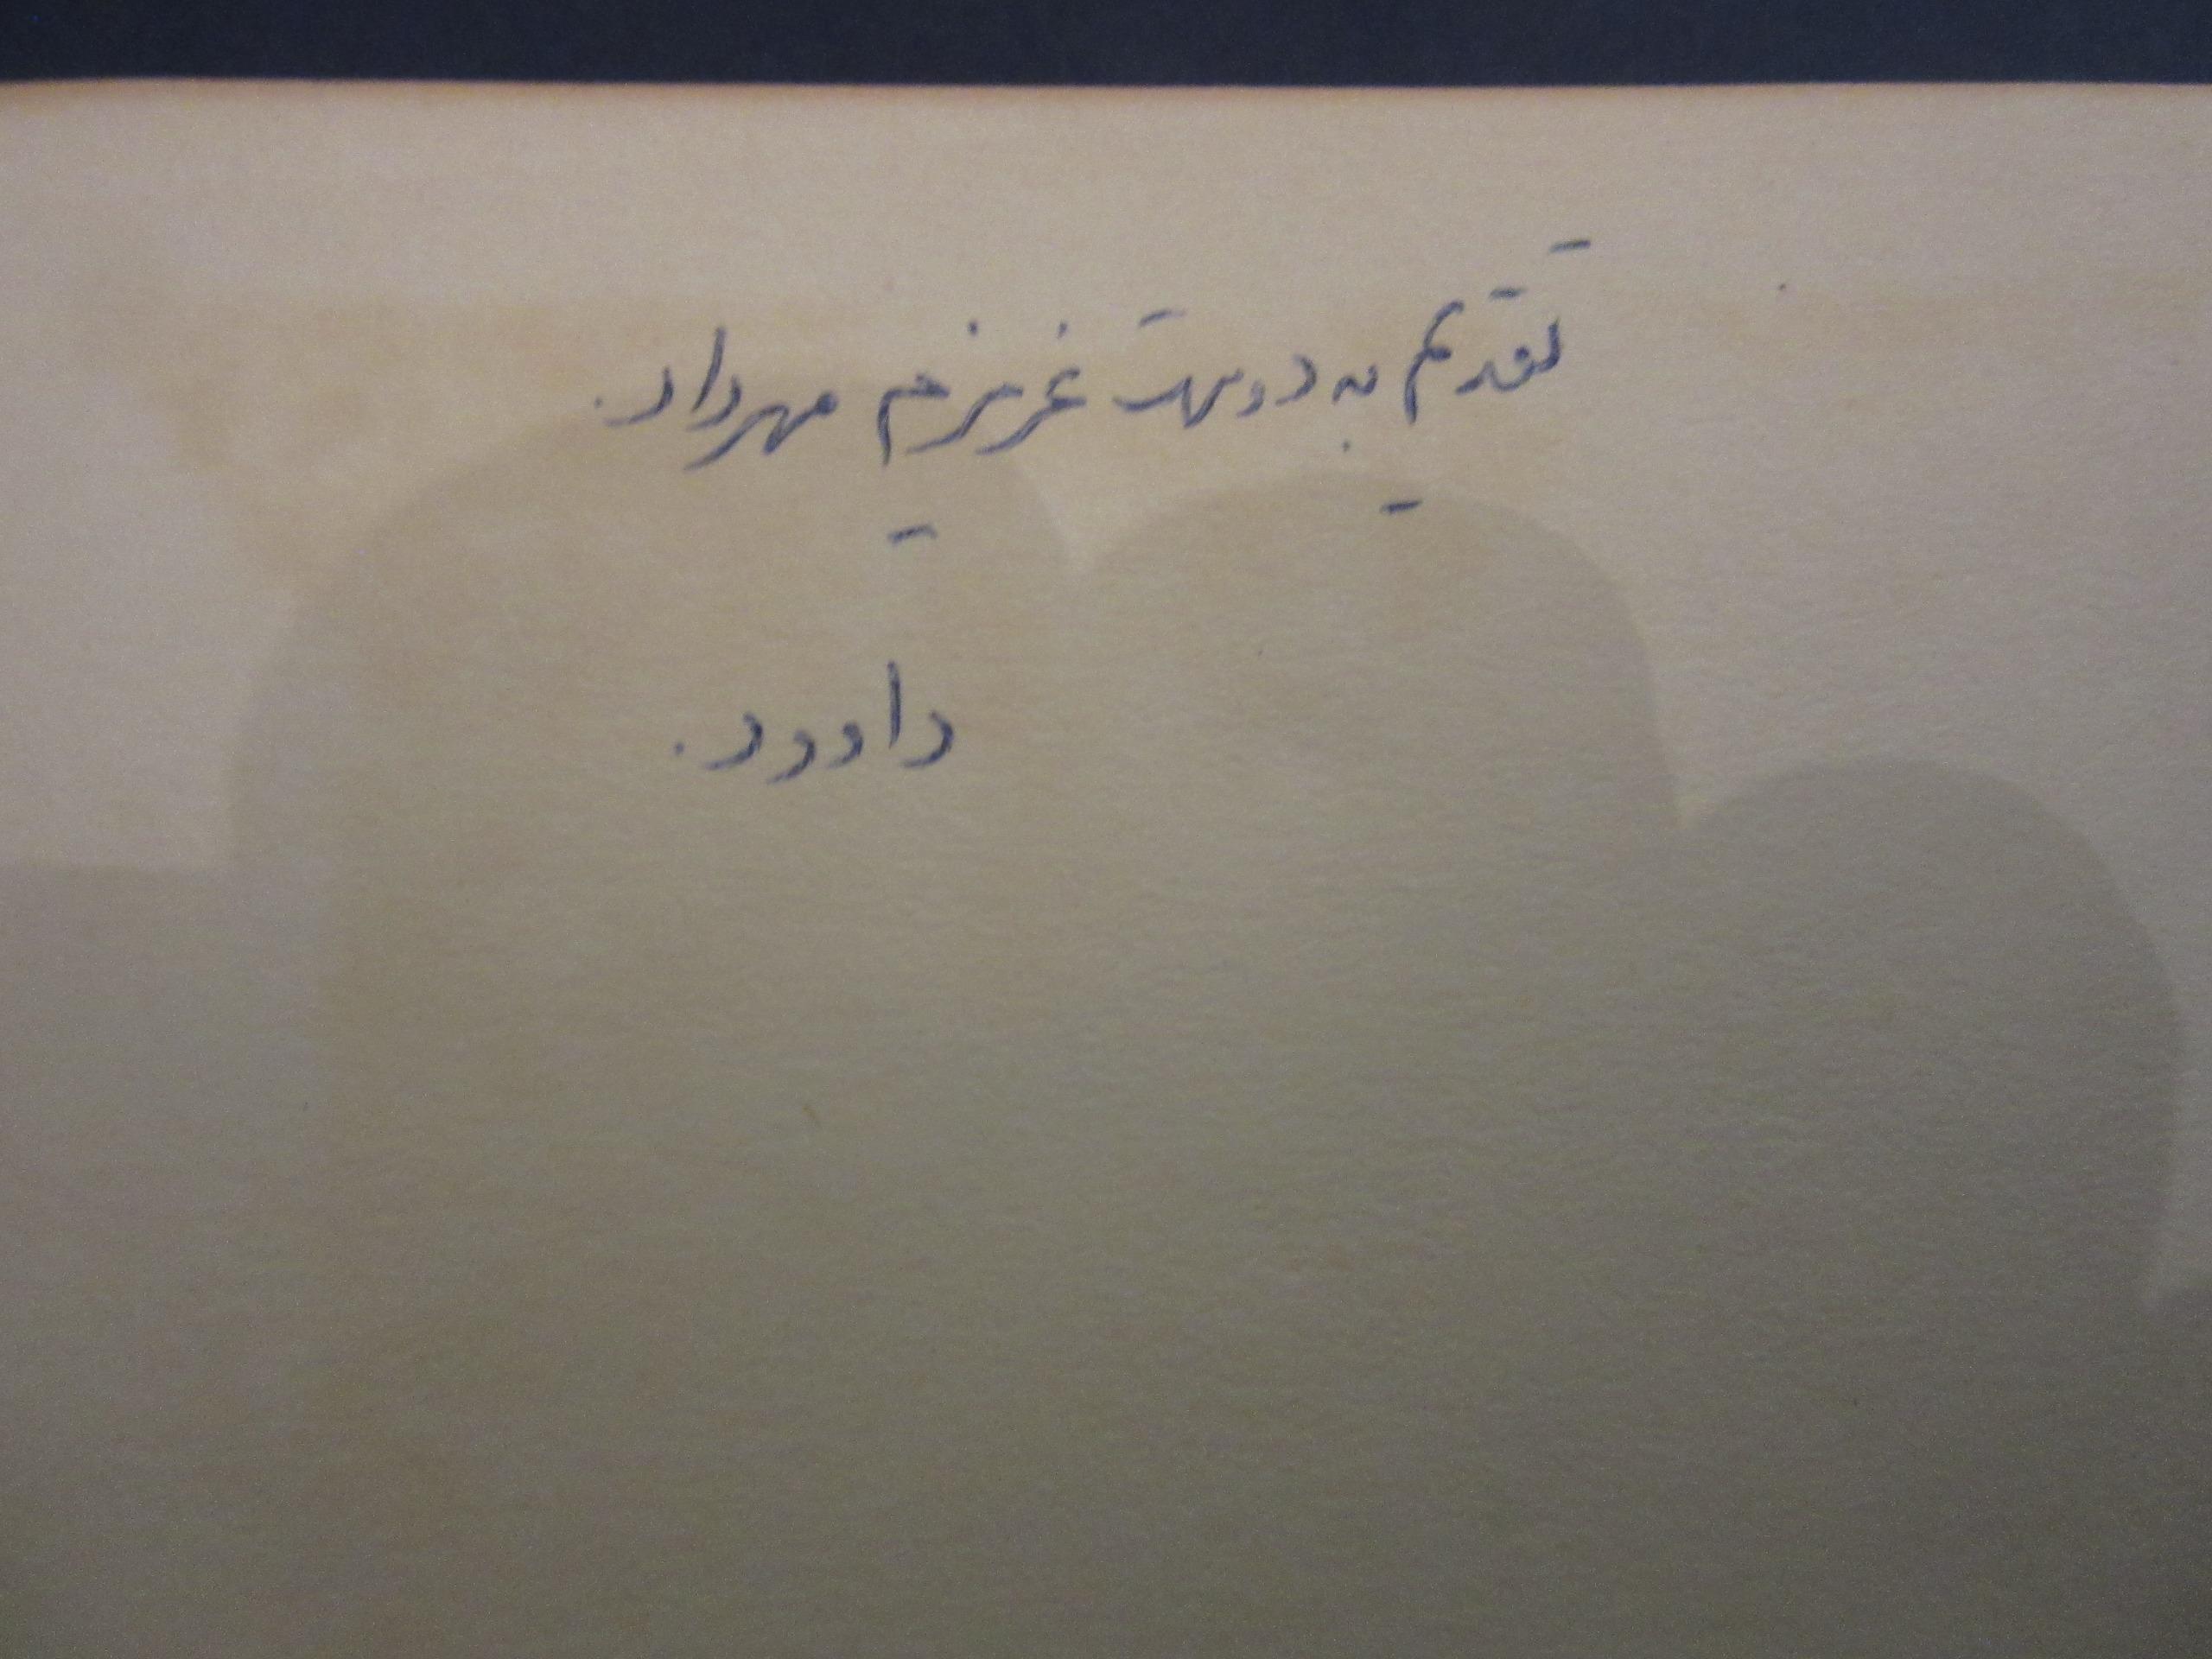 تقدیم به دوست عزیزم مهرداد.
داوود.